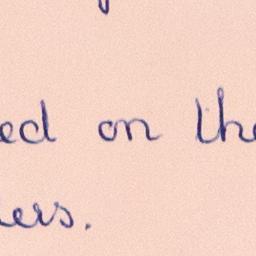 ed on the
ers.